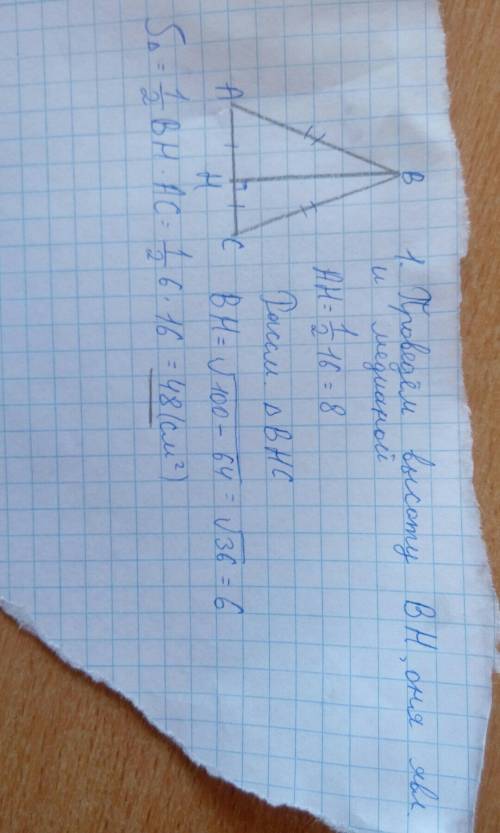 1. Проведём высоту BH, оня явл.
и медианой
B
AH = 1/2 16 = 8
Рассм. △ BHC
A
H
C
BH = √100 - 64 = √36 = 6
S△ = 1/2 BH · AC = 1/2 6 · 16 = 48 (см²)